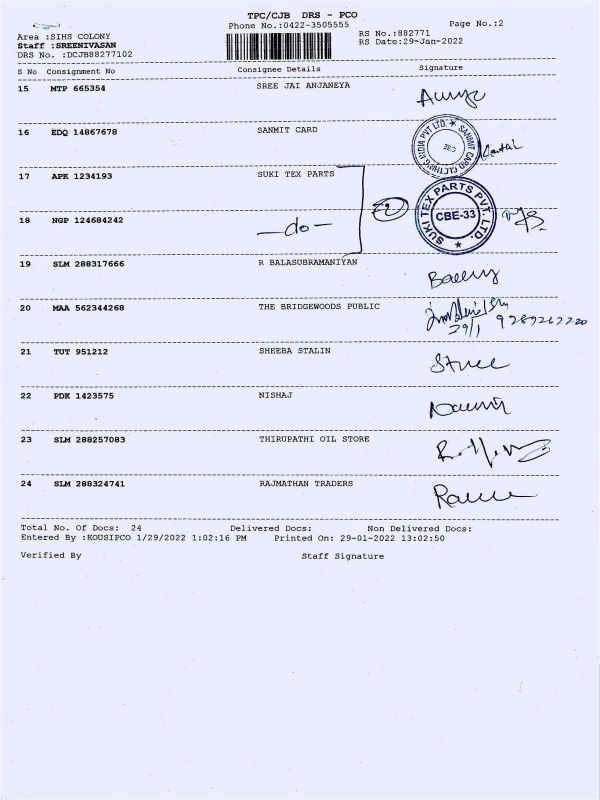 TPC/CJB DRS - PCO
Phone No.:0422-3505555
Page No.:2
Area :SIHS COLONY
RS No.:882771
Staff :SREENIVASAN
RS Date:29-Jan-2022
DRS No. :DCJB88277102
S No Consignment No Consignee Details Signature
15 MTP 665354 SREE JAI ANJANEYA
16 EDQ 14867678 SANMIT CARD
17 APK 1234193 SUKI TEX PARTS
SUKI TEX PARTS PVT. LTD. CBE-33
18 NGP 124684242 -do-
19 SLM 288317666 R BALASUBRAMANIYAN
20 MAA 562344268 THE BRIDGEWOODS PUBLIC
29/1
21 TUT 951212 SHEEBA STALIN
22 PDK 1423575 NISHAJ
23 SLM 288257083 THIRUPATHI OIL STORE
24 SLM 288324741 RAJMATHAN TRADERS
Total No. Of Docs: 24 Delivered Docs: Non Delivered Docs:
Entered By :KOUSIPCO 1/29/2022 1:02:16 PM Printed On: 29-01-2022 13:02:50
Verified By Staff Signature